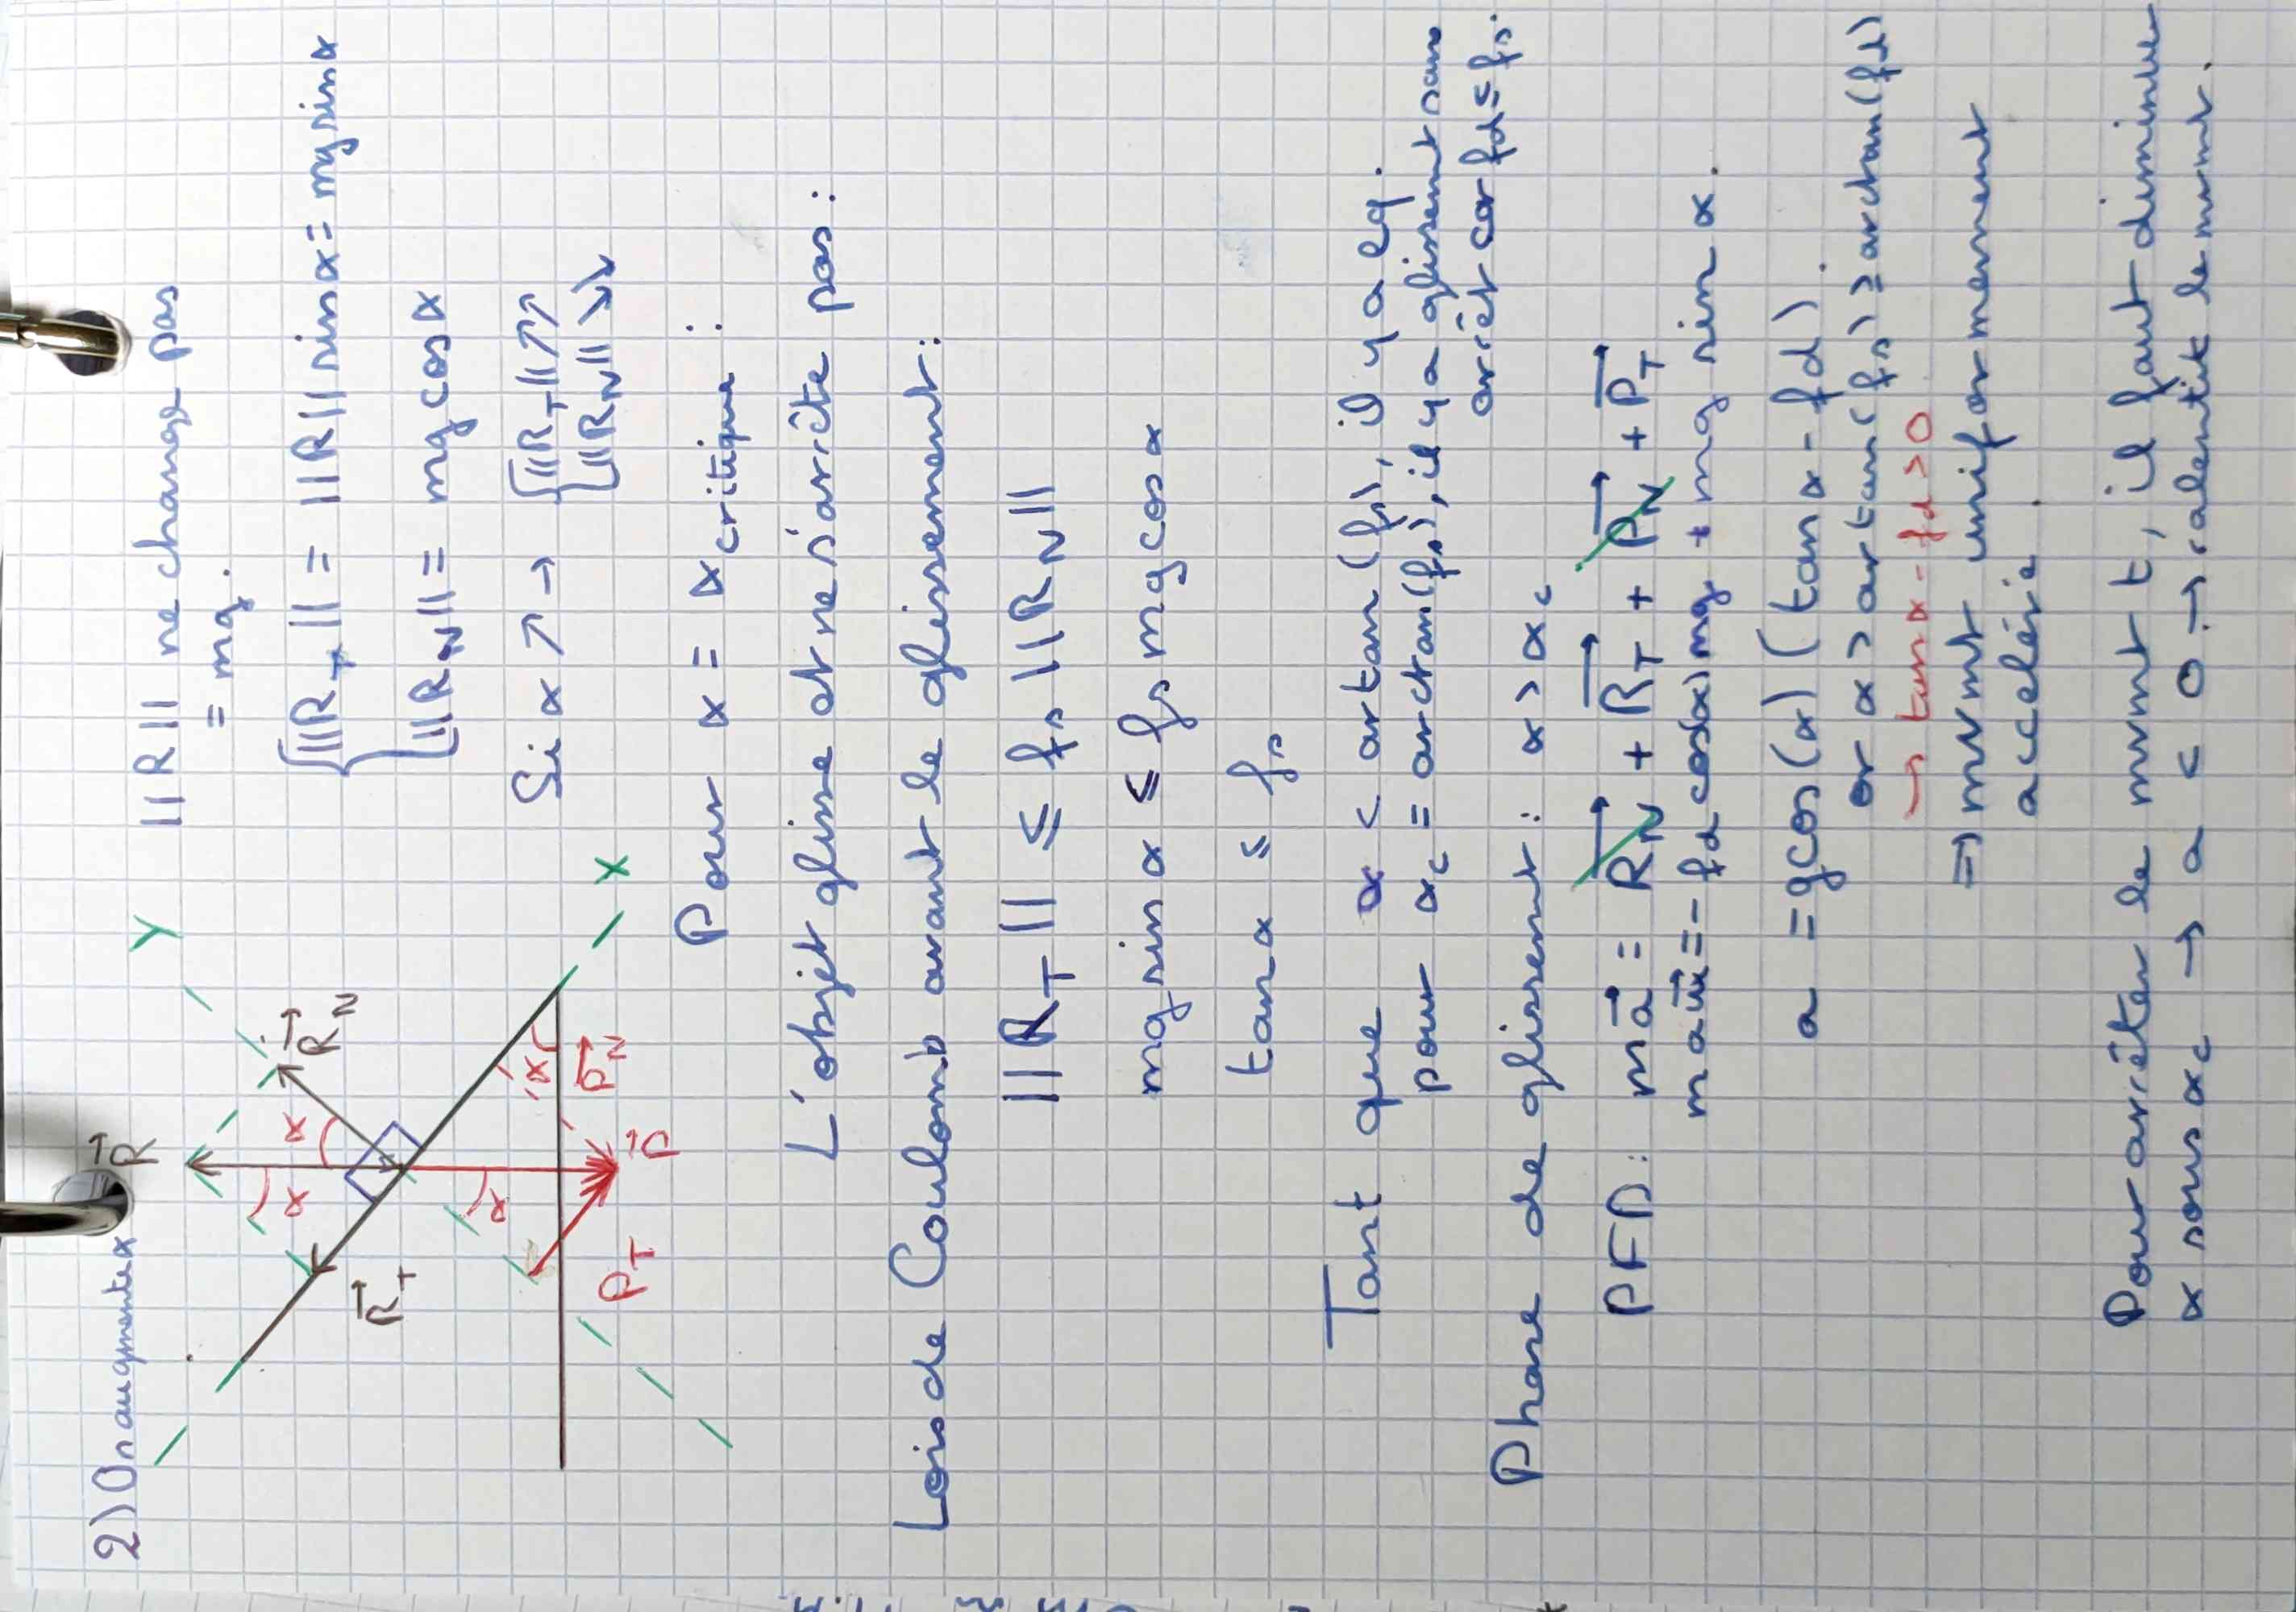 2) On augmente α
Y
R⃗
R⃗N
α
α
R⃗T
α
α
P⃗N
PT
P⃗
X
||R|| ne change pas
= mg.
{||RT|| = ||R|| sin α = mg sin α
||RN|| = mg cos α
Si α ↗ → {||RT|| ↗↗
||RN|| ↘↘
Pour α = α critique :
L'objet glisse et ne s'arrête pas :
Lois de Coulomb avant le glissement :
||RT|| ≤ fs ||RN||
mg sin α ≤ fs mg cos α
tan α ≤ fs
Tant que α < artan(fs), il y a eq.
pour αc = arctan(fs), il y a glissement sans
arrêt car fd ≤ fs.
Phase de glissemt : α > αc
PFD : m a⃗ = R⃗N + R⃗T + P⃗N + P⃗T
m a u⃗ = - fd cos(α) mg + mg sin α.
a = g cos(α) (tan α - fd).
or α > artan(fs) ≥ arctan(fd)
→ tan α - fd > 0
⇒ mvmt uniformement
accéléré.
Pour arrêter le mvmt t, il faut diminuer
α sous αc → a < 0 → ralentit le mvmt.